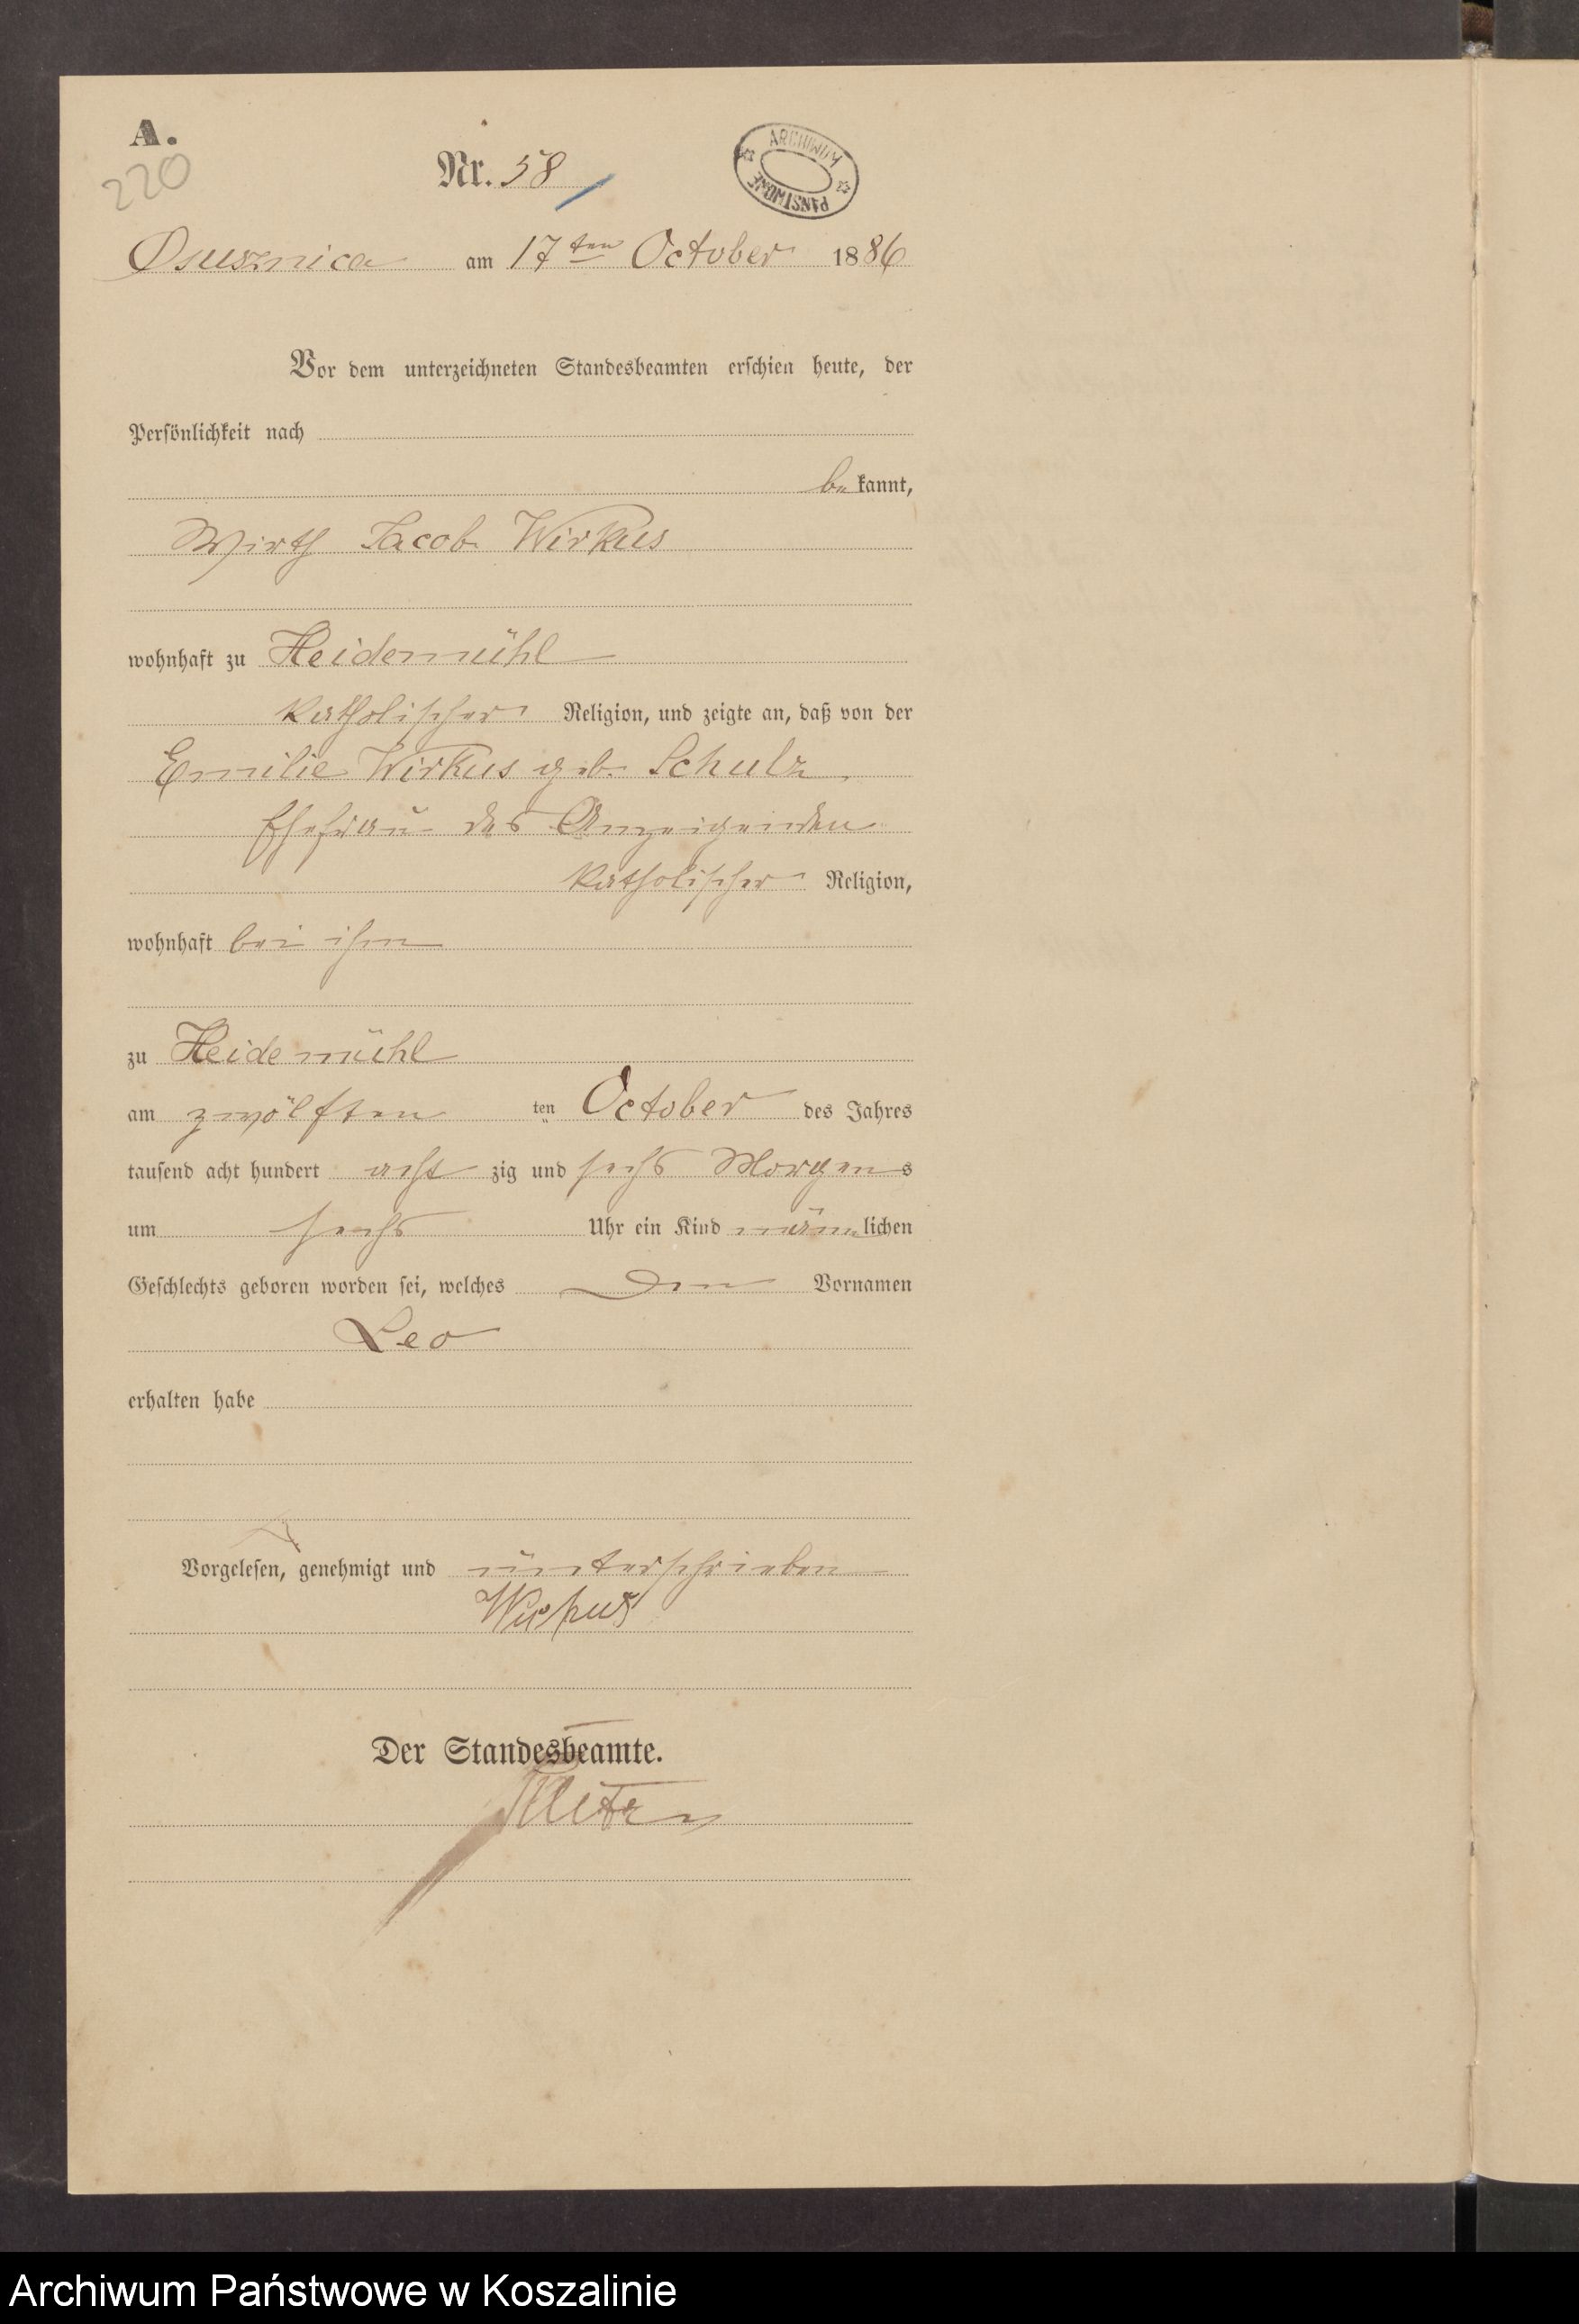 A.
220
Nr. 58
ARCHIWUM PAŃSTWOWE
Osusznica am 17ten October 1886
Vor dem unterzeichneten Standesbeamten erschien heute, der
Persönlichkeit nach
bekannt,
Wirth Jacob Wirkus
wohnhaft zu Heidemühl
katholischer Religion, und zeigte an, daß von der
Emilie Wirkus geb. Schulz,
Ehefrau des Anzeigenden
katholischer Religion,
wohnhaft bei ihm
zu Heidemühl
am zwölften ten October des Jahres
tausend acht hundert acht zig und sechs Morgens
um sechs Uhr ein Kind männlichen
Geschlechts geboren worden sei, welches den Vornamen
Leo
erhalten habe
Vorgelesen, genehmigt und unterschrieben
Wirkus
Der Standesbeamte.
Archiwum Państwowe w Koszalinie